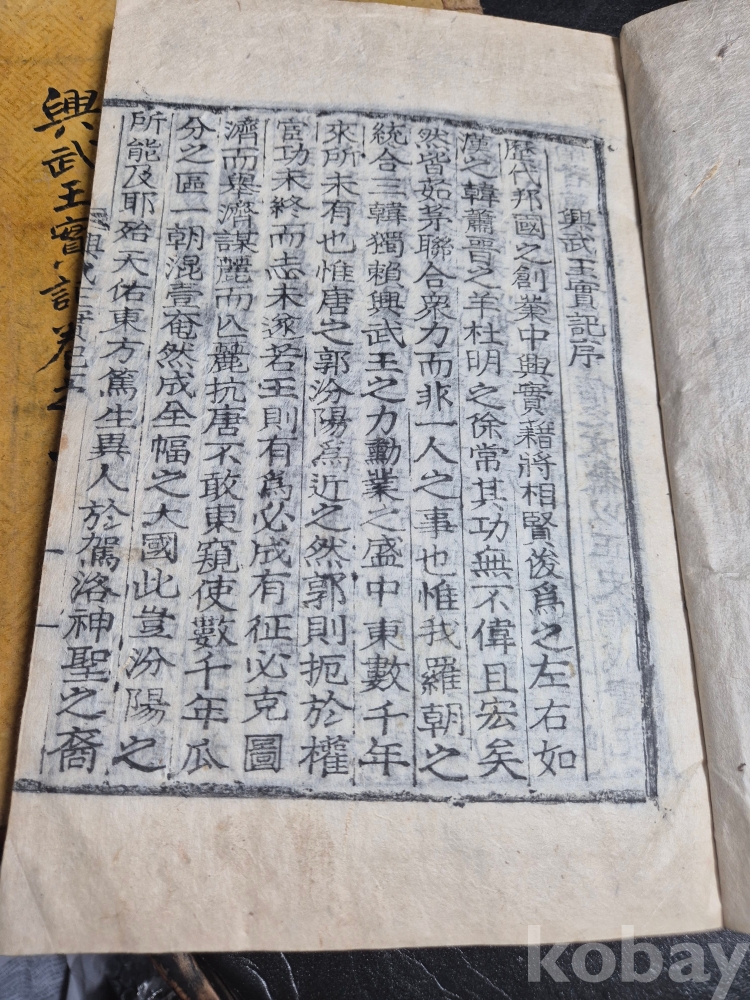 興武王實記序
歷代邦國之創業中興實藉將相賢俊爲之左右如
漢之韓蕭晋之羊杜明之徐常其功無不偉且宏矣
然皆如茅聯合衆力而非一人之事也惟我羅朝之
統合三韓獨賴興武王之力勳業之盛中東數千年
來所未有也惟唐之郭汾陽爲近之然郭則扼於權
宦功未終而志未遂若王則有爲必成有征必克圖
濟而擧濟謀麗而亾麗抗唐不敢東窺使數千年瓜
分之區一朝混壹奄然成全幅之大國此豈汾陽之
所能及耶殆天佑東方篤生異人於駕洛神聖之裔
興武王實記卷之
kobay